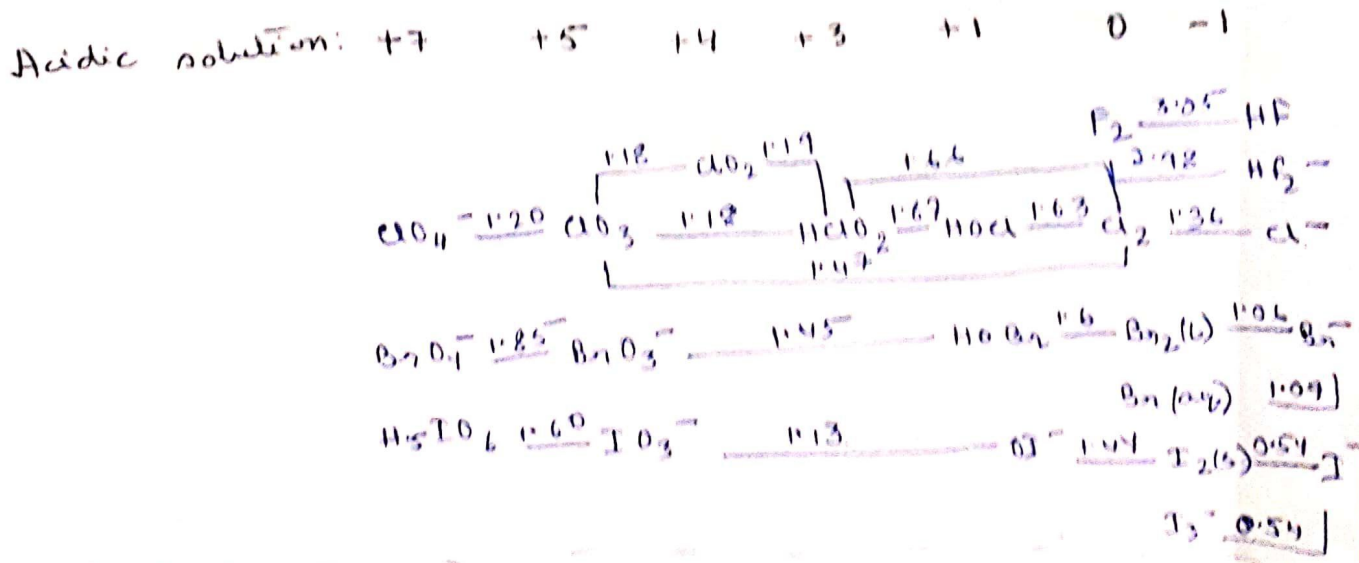 Acidic solution: +7 +5 +4 +3 +1 0 -1
F2 3.05 HF
1.18 ClO2 1.19 1.66 2.98 HF2-
ClO4- 1.20 ClO3 1.18 HClO2 1.67 HOCl 1.63 Cl2 1.36 Cl-
1.47
BrO4- 1.85 BrO3- 1.45 HOBr 1.6 Br2(l) 1.06 Br-
Br(aq) 1.09
H5IO6 1.60 IO3- 1.13 OI- 1.44 I2(s) 0.54 I-
I3- 0.54